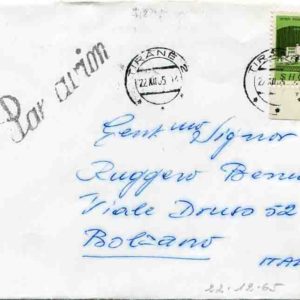 Par avion
TIRANË 2
22.XII.65
TIRA
22.XII.65
SHQ
Gent.mo Signor
Ruggero Ben
Viale Druso 52
Bolzano
ITA
22-12-65